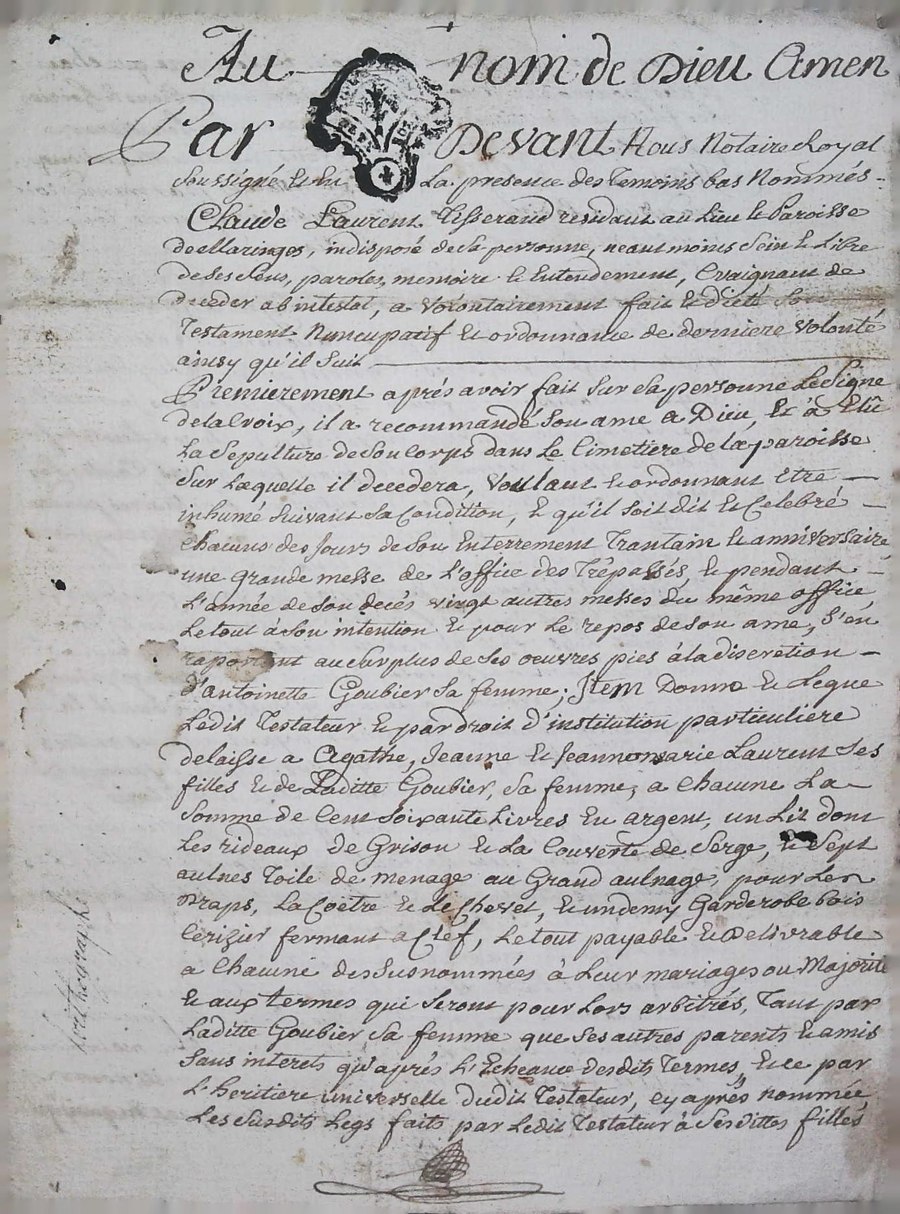 Au nom de Dieu Amen
Par Devant Nous Notaire Royal
Soussigné et En La presence des Temoins bas Nommés
Claude Laurent Tisserand residant au Lieu et Paroisse
de Maringes, indisposé de Sa personne, neantmoins Sein et Libre
de Ses Sens, paroles, memoire et Entendement, Craignant de
deceder abintestat, a Volontairement fait et dicté Son
Testament Nuncupatif et ordonnance de derniere Volonté
ainsy qu'il Suit
Premierement aprés avoir fait Sur Sa personne Le Signe
de la Croix, il a recommandé Son ame a Dieu, Et a Elû
La Sepulture de Son Corps dans Le Cimetiere de la paroisse
Sur Laquelle il decedera, Voullant et ordonnant Etre
inhumé Suivant Sa Condition, et qu'il Soit dit et Celebré
Chacuns des Jours de Son Enterrement Trantain et anniversaire,
une grande messe de L'office des Trépassés, et pendant
L'année de Son decés vingt autres messes du même office,
Le tout à Son intention et pour Le repos de Son ame, S'en
raportant au Surplus de Ses oeuvres pies à la discretion
d'antoinette Goubier Sa femme; Item Donne et Legue
Ledit Testateur et par droit d'institution particuliere
delaisse a Agathe, Jeanne et Jeanne marie Laurent Ses
filles et de Laditte Goubier, Sa femme, a Chacune La
Somme de Cent Soixante Livres En argent, un Lit dont
Les rideaux de Grison et La Couverte de Serge, et Sept
aulnes Toile de menage au Grand aulnage, pour Les
Draps, La Coëtre et Le Chevet, et un demy Garderobe bois
Cerizier fermant a Clef, Le tout payable et Delivrable
a Chacune des Susnommées à Leur mariages ou Majorité
et aux termes qui Seront pour Lors arbitrés, Tant par
Laditte Goubier Sa femme que Ses autres parents et amis
Sans interets qu'aprés L'Echeance desdits Termes, et ce par
L'heritiere universelle dudit Testateur, cy aprés nommée
Les Susdits Legs faits par Ledit Testateur à Sesdittes filles